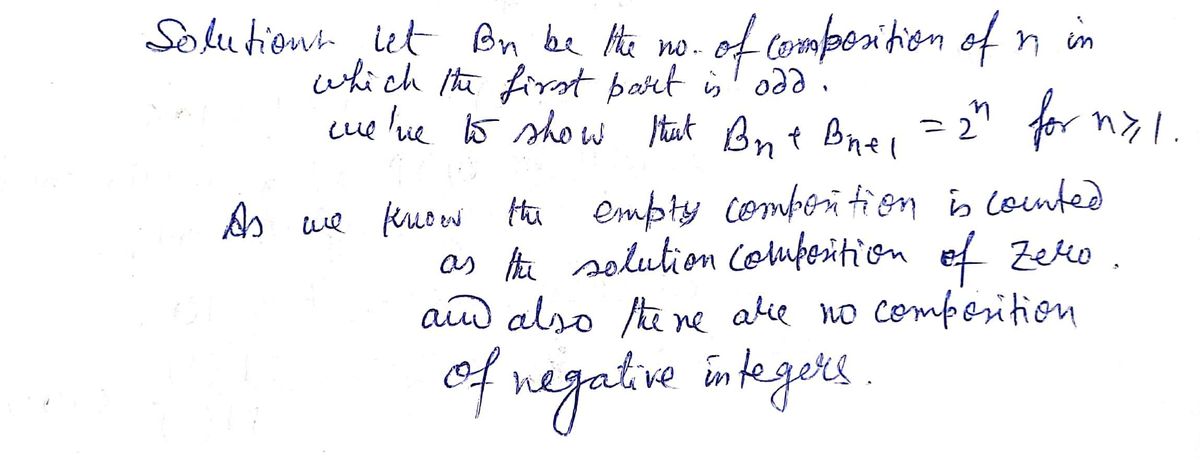 Solution:- let Bn be the no. of composition of n in
which the first part is odd.
we've to show that Bn + Bn+1 = 2ⁿ for n ≥ 1.
As we know the empty composition is counted
as the solution composition of zero.
and also there are no composition
of negative integers.